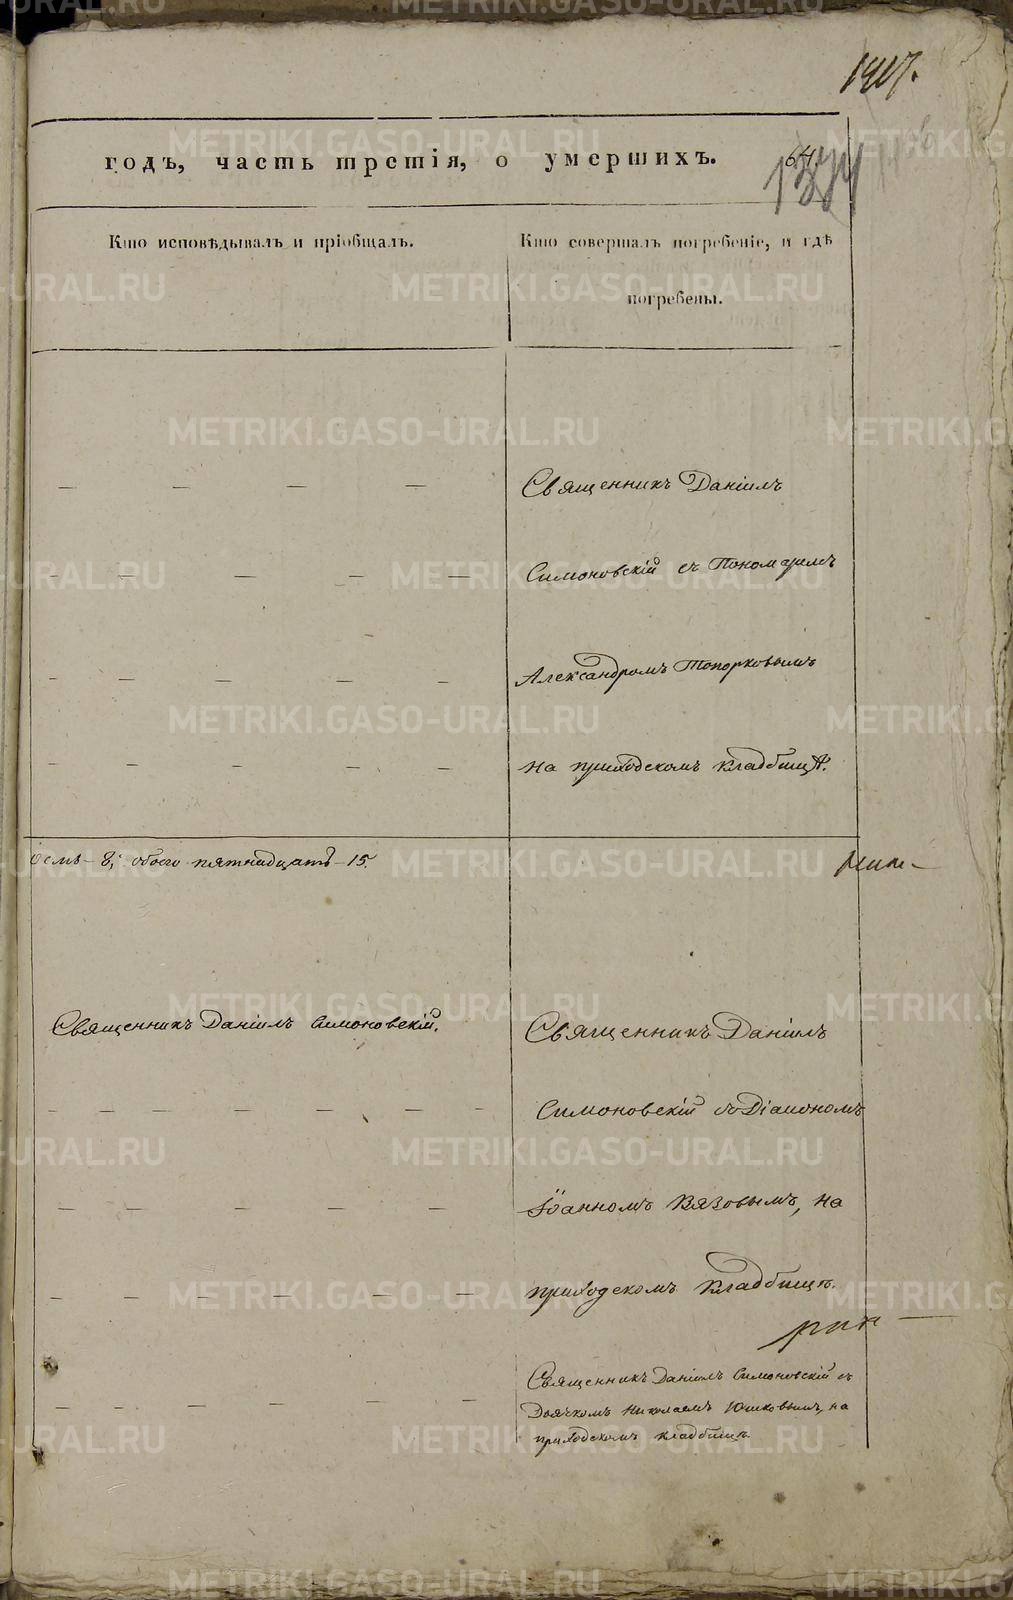 1417.
годъ, часть третія, о умершихъ.
64.
Кто исповѣдывалъ и пріобщалъ.
Кто совершалъ погребеніе, и гдѣ
погребены.
Священникъ Даніилъ
Симоновскій съ Пономаремъ
Александромъ Топорковымъ
на приходскомъ кладбищѣ.
осмь 8; обоего пятнадцать 15
Священникъ Даніилъ Симоновскій.
Священникъ Даніилъ
Симоновскій съ Діакономъ
Іоанномъ Вязовымъ, на
приходскомъ кладбищѣ.
Священникъ Даніилъ Симоновскій съ
Дьячкомъ Николаемъ Юшковымъ, на
приходскомъ кладбищѣ.
METRIKI.GASO-URAL.RU